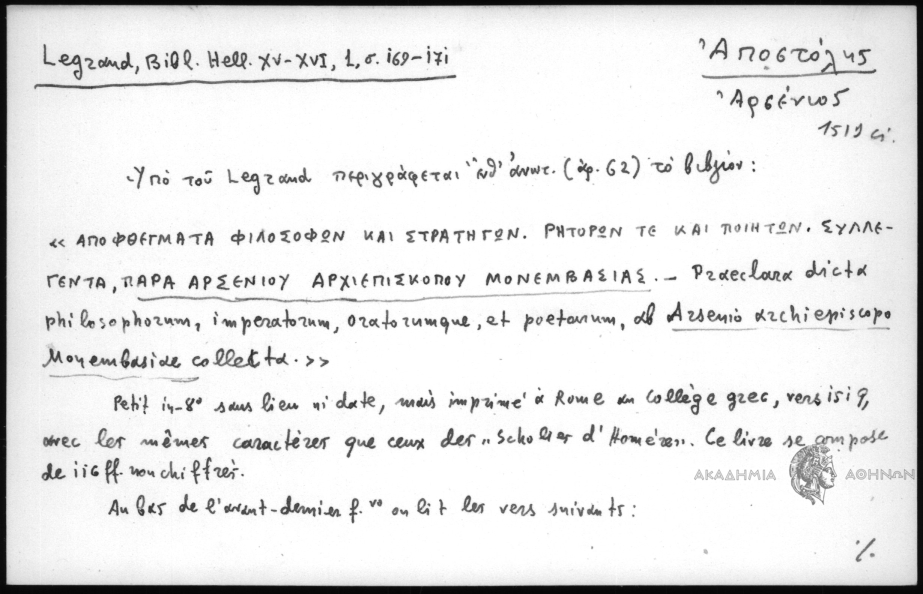 Legrand, Bibl. Hell. XV-XVI, 1, σ. 169-171
Ἀποστόλης
Ἀρσένιος
1519 ci.
Ὑπὸ τοῦ Legrand περιγράφεται ἐνθ' ἀνωτ. (ἀρ. 62) τὸ βιβλίον:
« ΑΠΟΦΘΕΓΜΑΤΑ ΦΙΛΟΣΟΦΩΝ ΚΑΙ ΣΤΡΑΤΗΓΩΝ. ΡΗΤΟΡΩΝ ΤΕ ΚΑΙ ΠΟΙΗΤΩΝ. ΣΥΛΛΕ-
ΓΕΝΤΑ, ΠΑΡΑ ΑΡΣΕΝΙΟΥ ΑΡΧΙΕΠΙΣΚΟΠΟΥ ΜΟΝΕΜΒΑΣΙΑΣ. _ Praeclara dicta
philosophorum, imperatorum, oratorumque, et poetarum, ab Arsenio archiepiscopo
Monembasiae collecta. »
Petit in-8° sans lieu ni date, mais imprimé à Rome au Collège grec, vers 1519,
avec les mêmes caractères que ceux des „Scholies d'Homère„. Ce livre se compose
de 116 ff non chiffrés.
Au bas de l'avant-dernier f. vo on lit les vers suivants:
ΑΚΑΔΗΜΙΑ ΑΘΗΝΩΝ
%